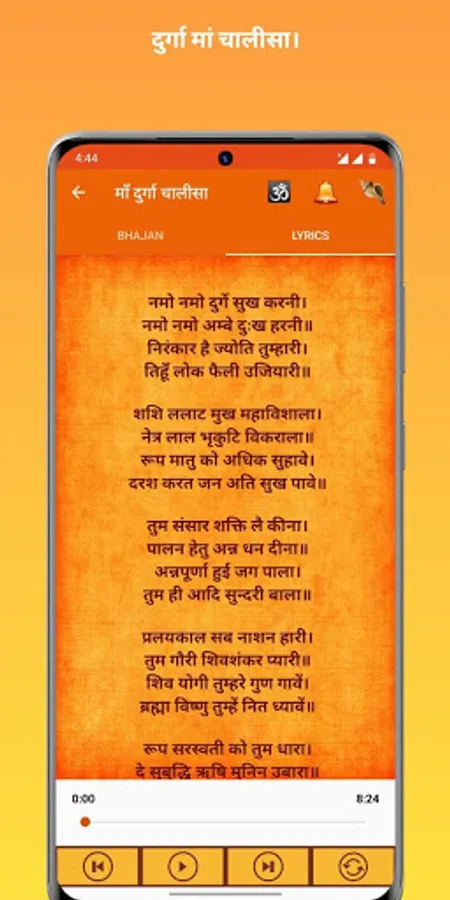 दुर्गा मां चालीसा।
4:44
माँ दुर्गा चालीसा
BHAJAN
LYRICS
नमो नमो दुर्गे सुख करनी।
नमो नमो अम्बे दुःख हरनी॥
निरंकार है ज्योति तुम्हारी।
तिहूँ लोक फैली उजियारी॥
शशि ललाट मुख महाविशाला।
नेत्र लाल भृकुटि विकराला॥
रूप मातु को अधिक सुहावे।
दरश करत जन अति सुख पावे॥
तुम संसार शक्ति लै कीना।
पालन हेतु अन्न धन दीना॥
अन्नपूर्णा हुई जग पाला।
तुम ही आदि सुन्दरी बाला॥
प्रलयकाल सब नाशन हारी।
तुम गौरी शिवशंकर प्यारी॥
शिव योगी तुम्हरे गुण गावें।
ब्रह्मा विष्णु तुम्हें नित ध्यावें॥
रूप सरस्वती को तुम धारा।
दे सुबुद्धि ऋषि मुनिन उबारा॥
0:00
8:24